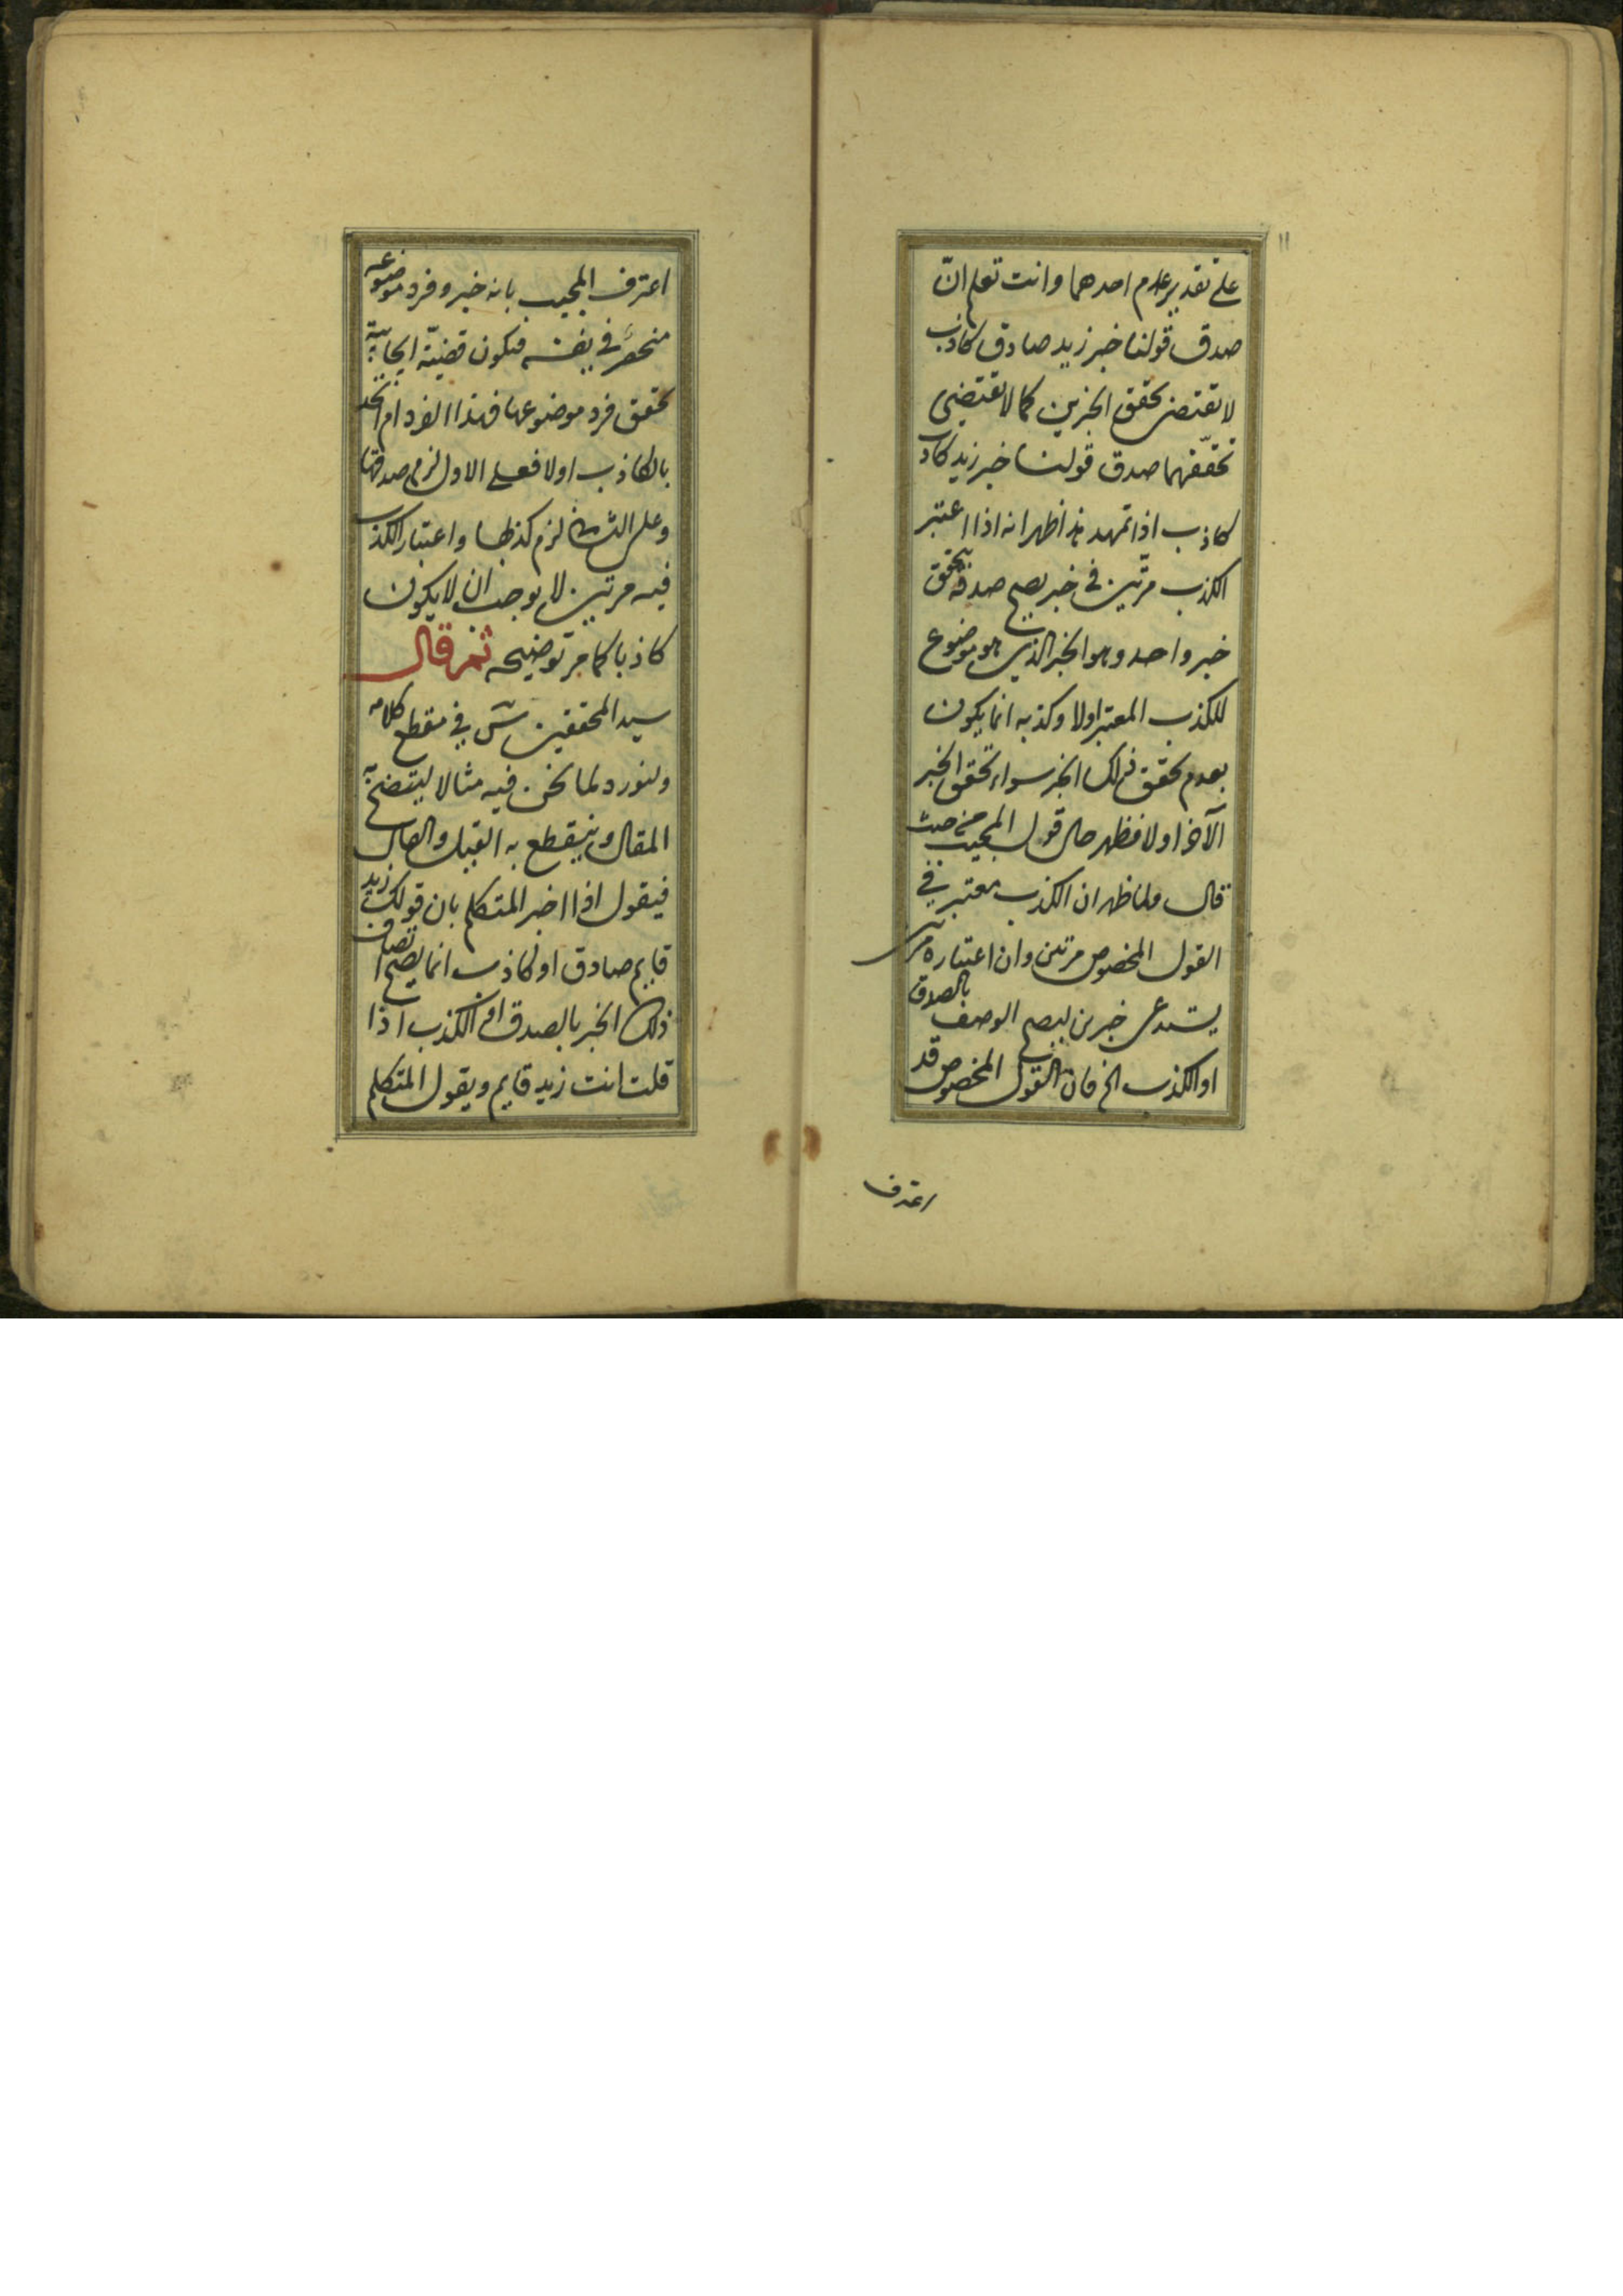 ١١
على تقدير عدم احدهما وانت تعلم انّ
صدق قولنا خبر زيد صادق كاذب
لا تقتضى تحقق الخبرين كما لا تقتضى
تحقّقهما صدق قولنا خبر زيد كاذب
كاذب اذا تمهد هذا ظهر انه اذا اعتبر
الكذب مرّتين فى خبر يصح صدقه بتحقق
خبر واحد وهو الخبر الذى هو موضوع
للكذب المعتبر اولا وكذبه انما يكون
بعدم تحقق ذلك الخبر سواء تحقق الخبر
الآخر اولا فظهر حال قول المجيب من حيث
قال ولما ظهر ان الكذب معتبر فى
القول المخصوص مرتين وان اعتباره مرتين
يستدعى خبرين ليصح الوصف بالصدق
او الكذب الخ فان القول المخصوص قد
اعترف
اعترف المجيب بانه خبر وفرد موضوعه
منحصر فى نفسه فيكون قضيّة ايجابية
تحقق فرد موضوعها فهذا الفرد ام اتحد
بالكاذب اولا فعلى الاول لزم صدقها
وعلى الثانى لزم كذبها واعتبار الكذب
فيه مرتين لا يوجب ان لا يكون
كاذبا كما مر توضيحه ثم قال
سيد المحققين س فى مقطع كلامه
ولنورد لما نحن فيه مثالا ليتضح به
المقال وينقطع به القيل والقال
فيقول اذا اخبر المتكلم بان قولك زيد
قايم صادق او كاذب انما يصح اتصاف
ذلك الخبر بالصدق او الكذب اذا
قلت انت زيد قايم ويقول المتكلم